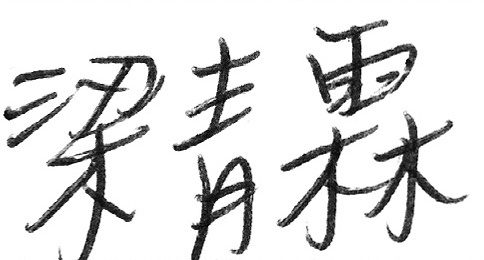 梁青霖